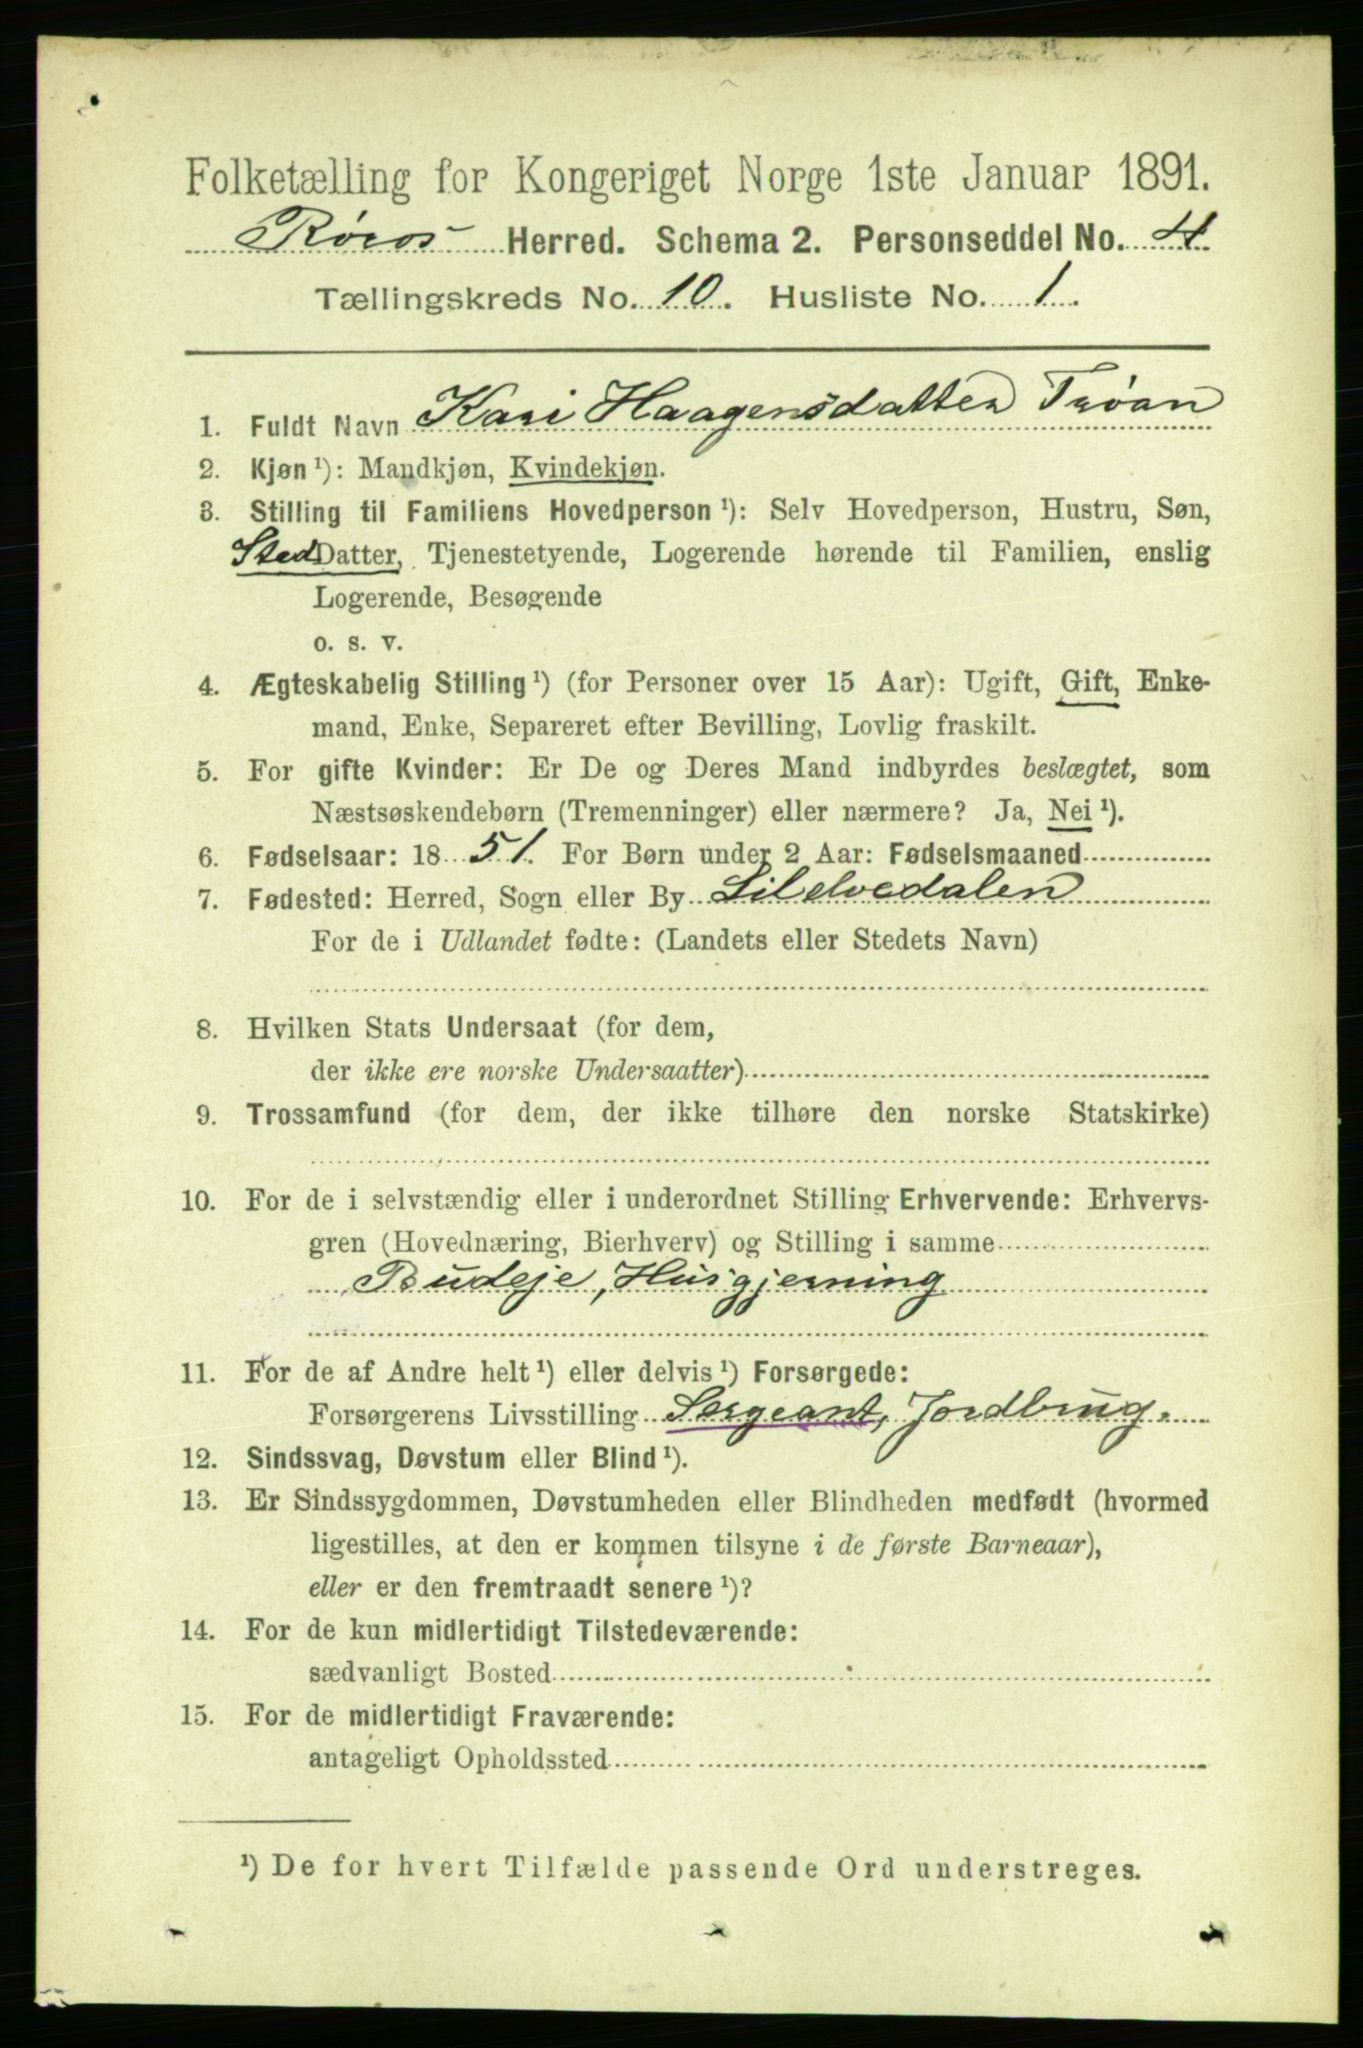 Folketælling for Kongeriget Norge 1ste Januar 1891.
Røros Herred. Schema 2. Personseddel No. 4
Tællingskreds No. 10. Husliste No. 1.
1. Fuldt Navn Kari Haagensdatter Trøan
2. Kjøn¹): Mandkjøn, Kvindekjøn.
3. Stilling til Familiens Hovedperson¹): Selv Hovedperson, Hustru, Søn,
Sted Datter, Tjenestetyende, Logerende hørende til Familien, enslig
Logerende, Besøgende
o. s. v.
4. Ægteskabelig Stilling¹) (for Personer over 15 Aar): Ugift, Gift, Enke-
mand, Enke, Separeret efter Bevilling, Lovlig fraskilt.
5. For gifte Kvinder: Er De og Deres Mand indbyrdes beslægtet, som
Næstsøskendebørn (Tremenninger) eller nærmere? Ja, Nei¹).
6. Fødselsaar: 1851. For Børn under 2 Aar: Fødselsmaaned
7. Fødested: Herred, Sogn eller By Lilelvedalen
For de i Udlandet fødte: (Landets eller Stedets Navn)
8. Hvilken Stats Undersaat (for dem,
der ikke ere norske Undersaatter)
9. Trossamfund (for dem, der ikke tilhøre den norske Statskirke)
10. For de i selvstændig eller i underordnet Stilling Erhvervende: Erhvervs-
gren (Hovednæring, Bierhverv) og Stilling i samme
Budeje, Husgjerning
11. For de af Andre helt¹) eller delvis¹) Forsørgede:
Forsørgerens Livsstilling Sergeant, Jordbrug.
12. Sindssvag, Døvstum eller Blind¹).
13. Er Sindssygdommen, Døvstumheden eller Blindheden medfødt (hvormed
ligestilles, at den er kommen tilsyne i de første Barneaar),
eller er den fremtraadt senere¹)?
14. For de kun midlertidigt Tilstedeværende:
sædvanligt Bosted
15. For de midlertidigt Fraværende:
antageligt Opholdssted
¹) De for hvert Tilfælde passende Ord understreges.